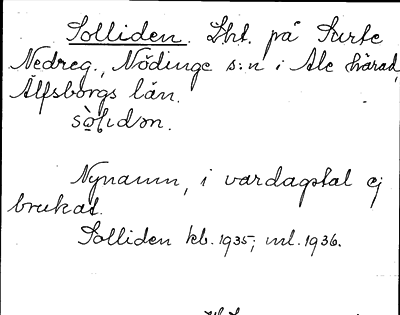 Solliden. Lht. på Surte
Nedreg., Nödinge s:n i Ale härad,
Älfsborgs län.
Nynamn, i vardagstal ej
brukat.
Solliden kb. 1935; ml. 1936.